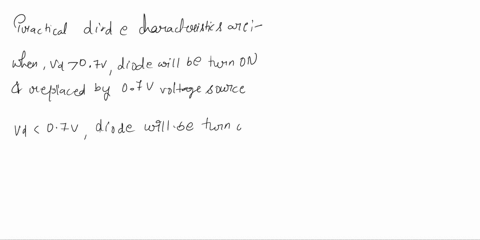 Practical diode characteristics are:-
when, Vd > 0.7V, diode will be turn ON
& replaced by 0.7V voltage source
Vd < 0.7V, diode will be turn